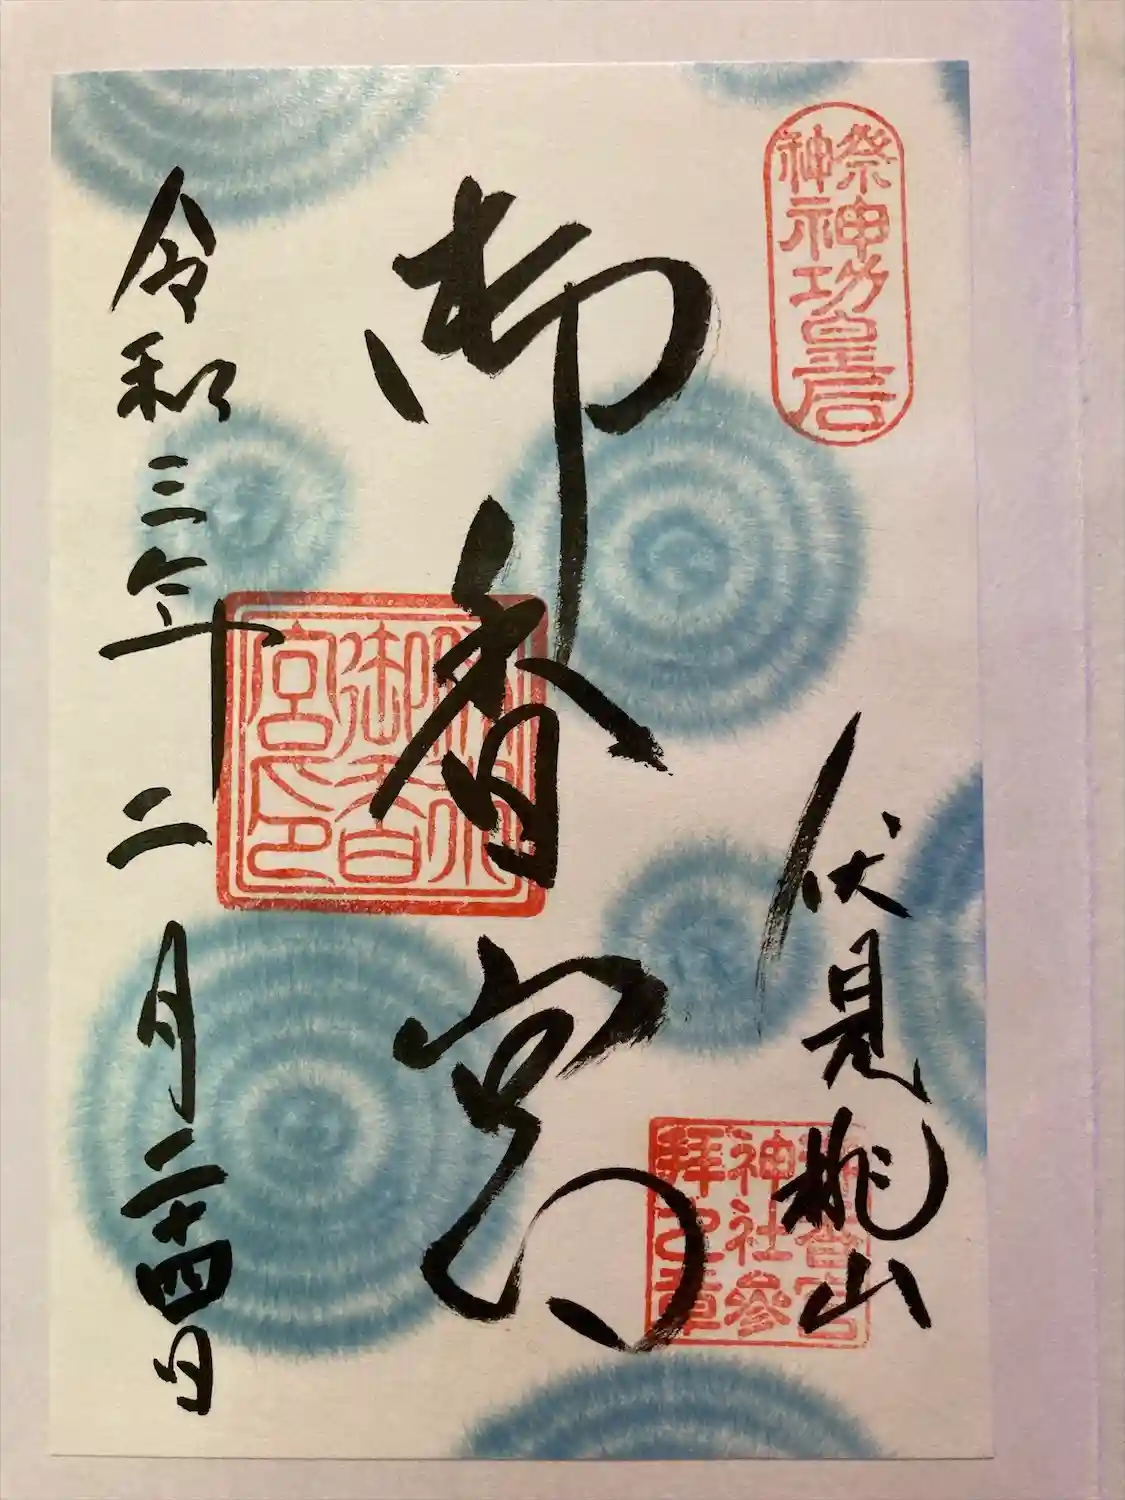 祭神
神功皇后
伏見桃山
御香宮
神社參
拜之章
御香宮
御香
宮印
令和三年二月二十四日